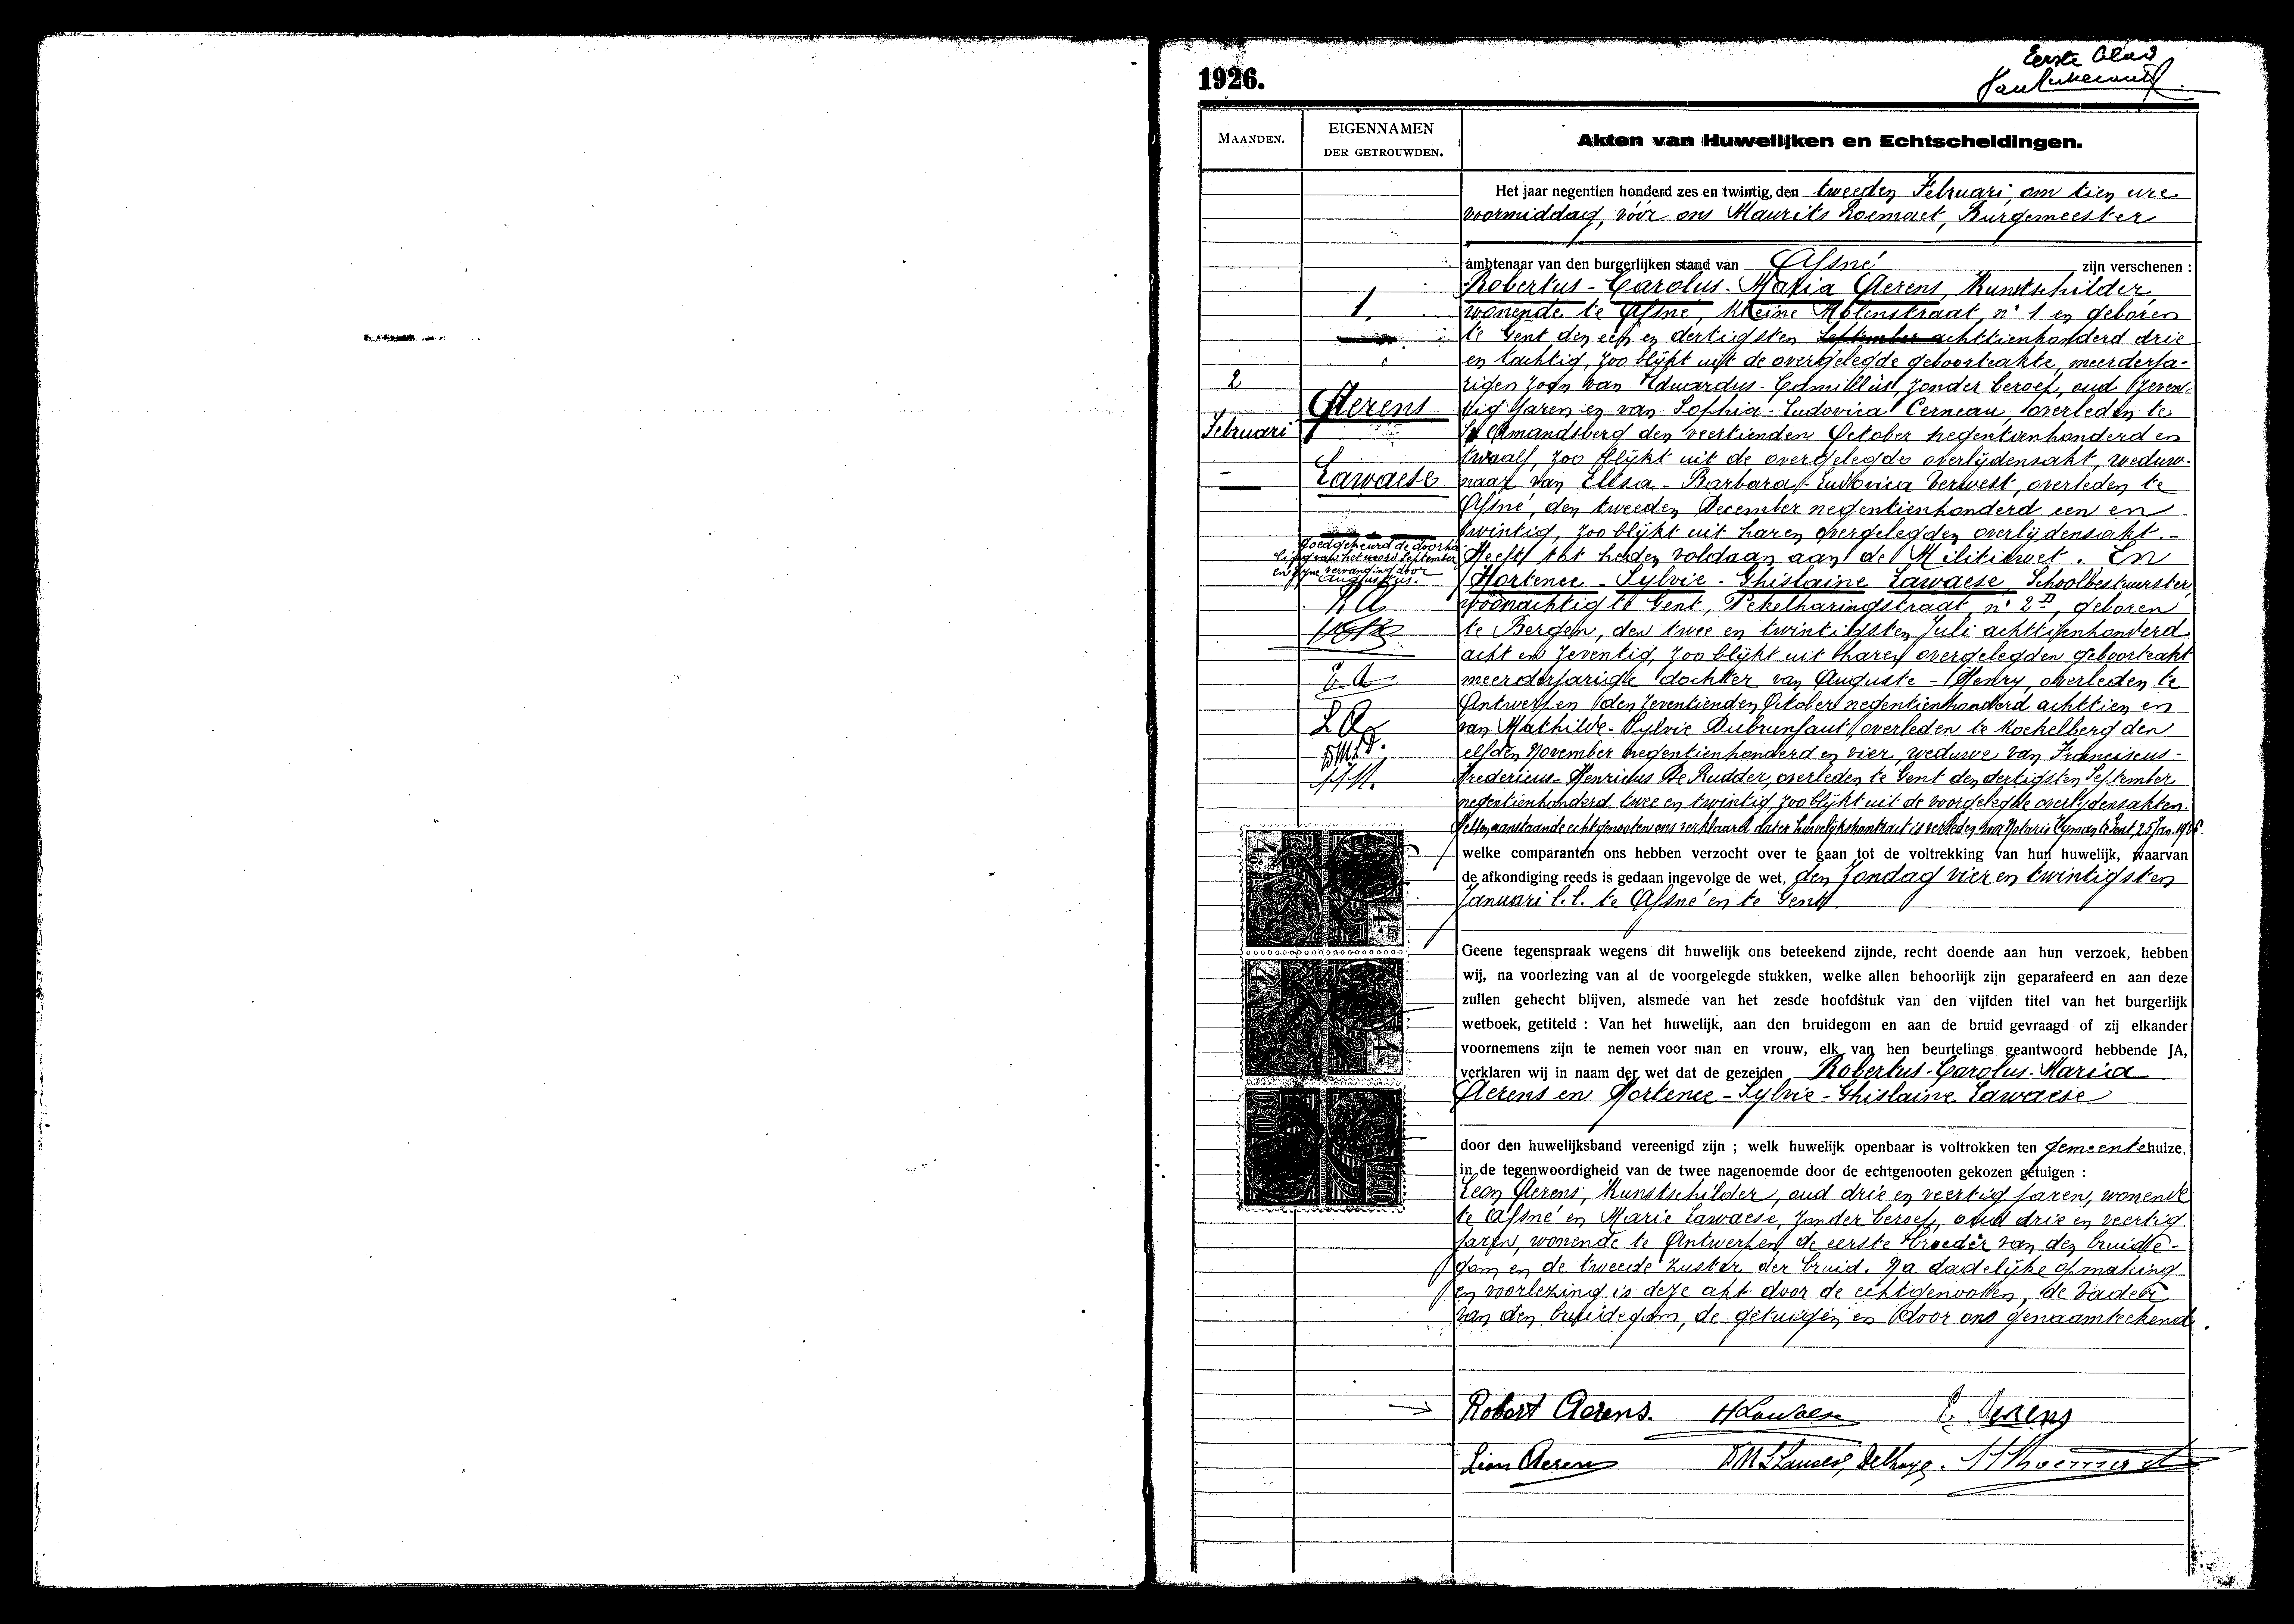 Eerste blad
1926.
MAANDEN.
EIGENNAMEN
DER GETROUWDEN.
Akten van Huwelijken en Echtscheidingen.
1.
2
Februari
Aerens
Lawaese
Goedgekeurd de doorha
ling van het woord September
en zijne vervanging door
Augustus.
R A
E. A
L A
Het jaar negentien honderd zes en twintig, den tweeden Februari, om tien ure
voormiddag, vóór ons Maurits Roemaet, Burgemeester
ambtenaar van den burgerlijken stand van Afsné zijn verschenen :
Robertus - Carolus - Maria Aerens, Kunstschilder,
wonende te Afsné, Kleine Molenstraat, n° 1 en geboren
te Gent den een en dertigsten September achttienhonderd drie
en tachtig, zoo blijkt uit de overgelegde geboorteakte, meerderja-
rigen zoon van Eduardus - Camillus, zonder beroep, oud zeven-
tig jaren en van Sophia - Ludovica Cerneau, overleden te
St Amandsberg den veertienden October negentienhonderd en
twaalf, zoo blijkt uit de overgelegde overlijdensakt, weduw-
naar van Elisa - Barbara - Ludovica Verwest, overleden te
Afsné, den tweeden December negentienhonderd een en
twintig, zoo blijkt uit haren overgelegden overlijdensakt. -
Heeft tot heden voldaan aan de Militiewet. En
Hortence - Sylvie - Ghislaine Lawaese, Schoolbestuurster,
woonachtig te Gent, Pekelharingstraat, n° 2D, geboren
te Bergen, den twee en twintigsten Juli achttienhonderd
acht en zeventig, zoo blijkt uit haren overgelegden geboorteakt
meerderjarige dochter van Auguste - Henry, overleden te
Antwerpen den zeventienden October negentienhonderd achttien en
van Mathilde - Sylvie Dubrunfaut, overleden te Koekelberg den
elfden November negentienhonderd en vier, weduwe van Franciscus -
Fredericus - Henricus De Rudder, overleden te Gent den dertigsten September
negentienhonderd twee en twintig, zoo blijkt uit de voorgelegde overlijdensakten.
aanstaande echtgenooten ons verklaard dat er huwelijkskontrakt is verleden voor Notaris Hyman te Gent, 25 Jan. 1926.
welke comparanten ons hebben verzocht over te gaan tot de voltrekking van hun huwelijk, waarvan
de afkondiging reeds is gedaan ingevolge de wet, den Zondag vier en twintigsten
Januari l.l. te Afsné en te Gent
Geene tegenspraak wegens dit huwelijk ons beteekend zijnde, recht doende aan hun verzoek, hebben
wij, na voorlezing van al de voorgelegde stukken, welke allen behoorlijk zijn geparafeerd en aan deze
zullen gehecht blijven, alsmede van het zesde hoofdstuk van den vijfden titel van het burgerlijk
wetboek, getiteld : Van het huwelijk, aan den bruidegom en aan de bruid gevraagd of zij elkander
voornemens zijn te nemen voor man en vrouw, elk van hen beurtelings geantwoord hebbende JA,
verklaren wij in naam der wet dat de gezeiden Robertus - Carolus - Maria
Aerens en Hortence - Sylvie - Ghislaine Lawaese
door den huwelijksband vereenigd zijn ; welk huwelijk openbaar is voltrokken ten gemeentehuize,
in de tegenwoordigheid van de twee nagenoemde door de echtgenooten gekozen getuigen :
Leon Aerens, Kunstschilder, oud drie en veertig jaren, wonende
te Afsné en Marie Lawaese, zonder beroep, oud drie en veertig
jaren, wonende te Antwerpen, de eerste broeder van den bruide-
gom en de tweede zuster der bruid. Na dadelijke opmaking
en voorlezing is deze akt door de echtgenooten, de vader
van den bruidegom, de getuigen en door ons genaamteekend.
Robert Aerens. H Lawaese E. Aerens
Léon Aerens
0.50
0.50